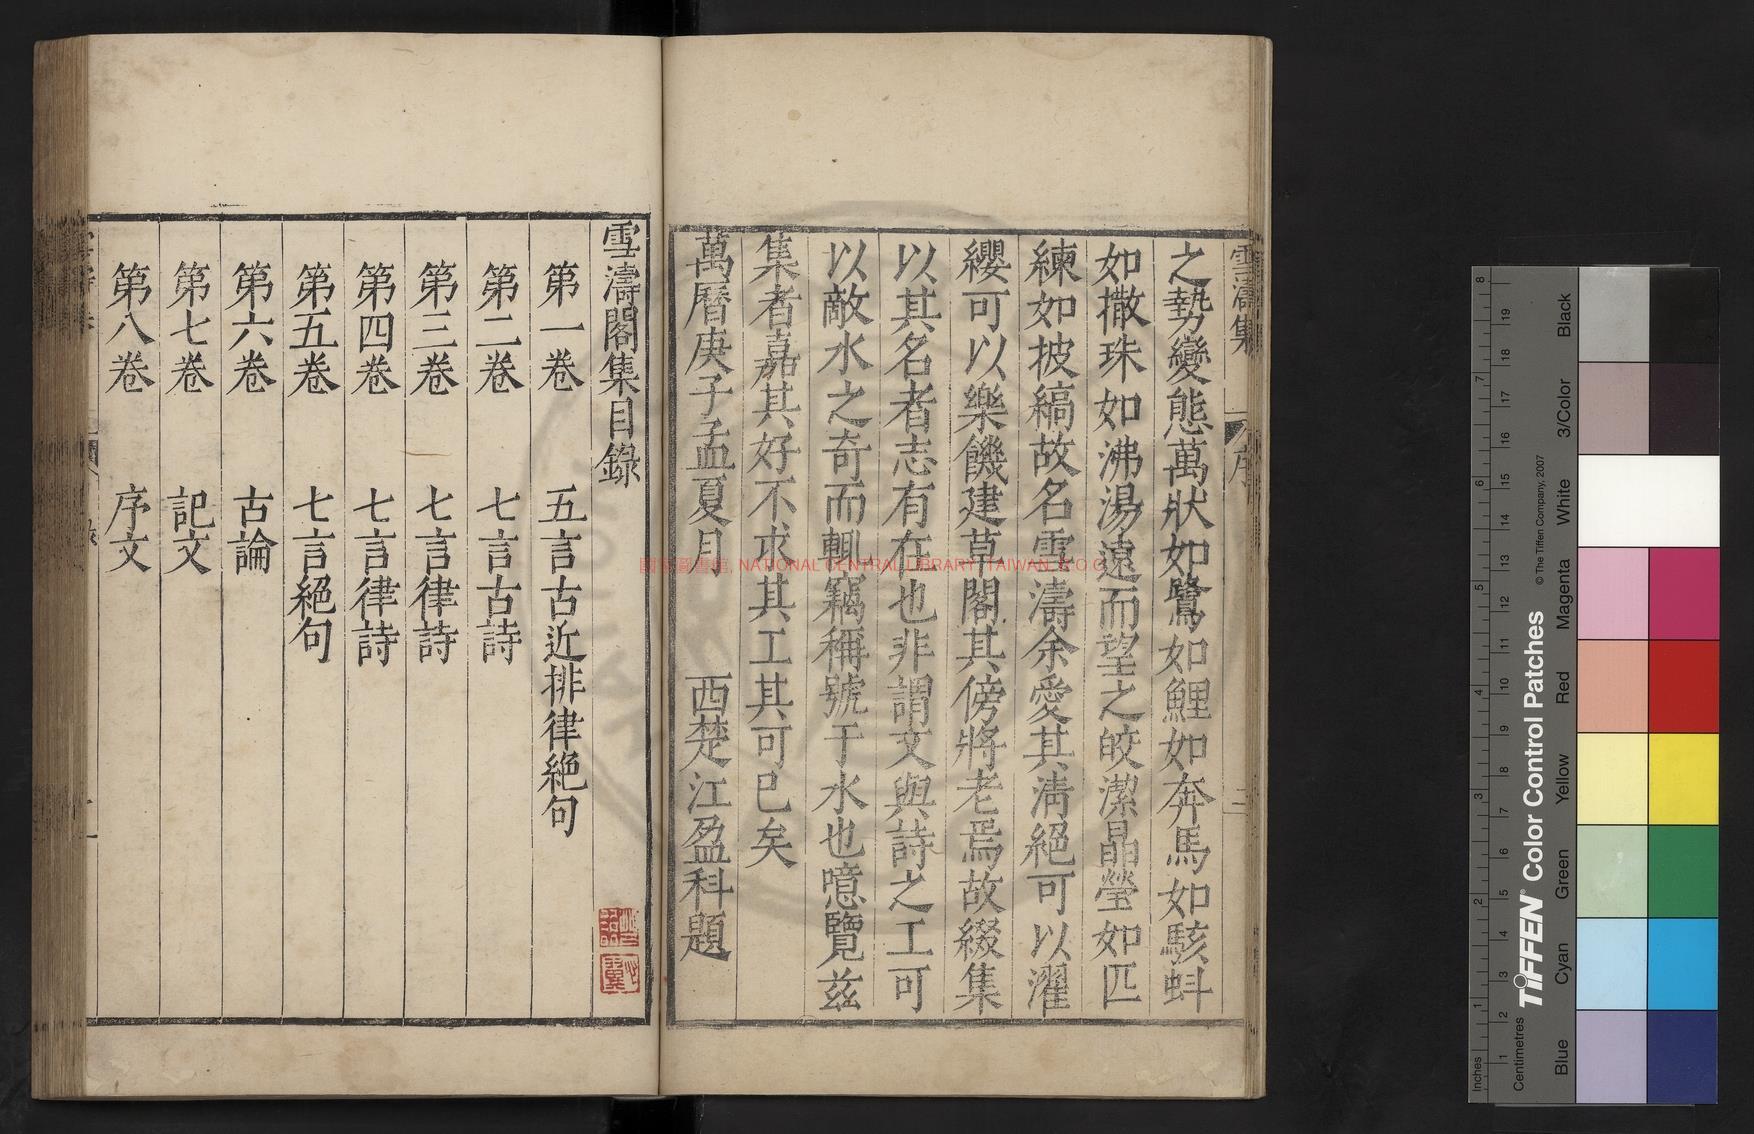 之勢變態萬狀如鷺如鯉如奔馬如駭蚪
如撒珠如沸湯遠而望之皎潔晶瑩如匹
練如披縞故名雪濤余愛其清絕可以濯
纓可以樂饑建草閣其傍將老焉故綴集
以其名者志有在也非謂文與詩之工可
以敵水之奇而輒竊稱號于水也噫覽茲
集者嘉其好不求其工其可已矣
萬曆庚子孟夏月 西楚江盈科題
雪濤閣集目錄
第一卷 五言古近排律絕句
第二卷 七言古詩
第三卷 七言律詩
第四卷 七言律詩
第五卷 七言絕句
第六卷 古論
第七卷 記文
第八卷 序文
雪濤集 序 二
國家圖書館, NATIONAL CENTRAL LIBRARY, TAIWAN, R.O.C
TIFFEN® Color Control Patches
© The Tiffen Company, 2007
Centimetres
Inches
Blue Cyan Green Yellow Red Magenta White 3/Color Black
1 2 3 4 5 6 7 8 9 10 11 12 13 14 15 16 17 18 19
1 2 3 4 5 6 7 8